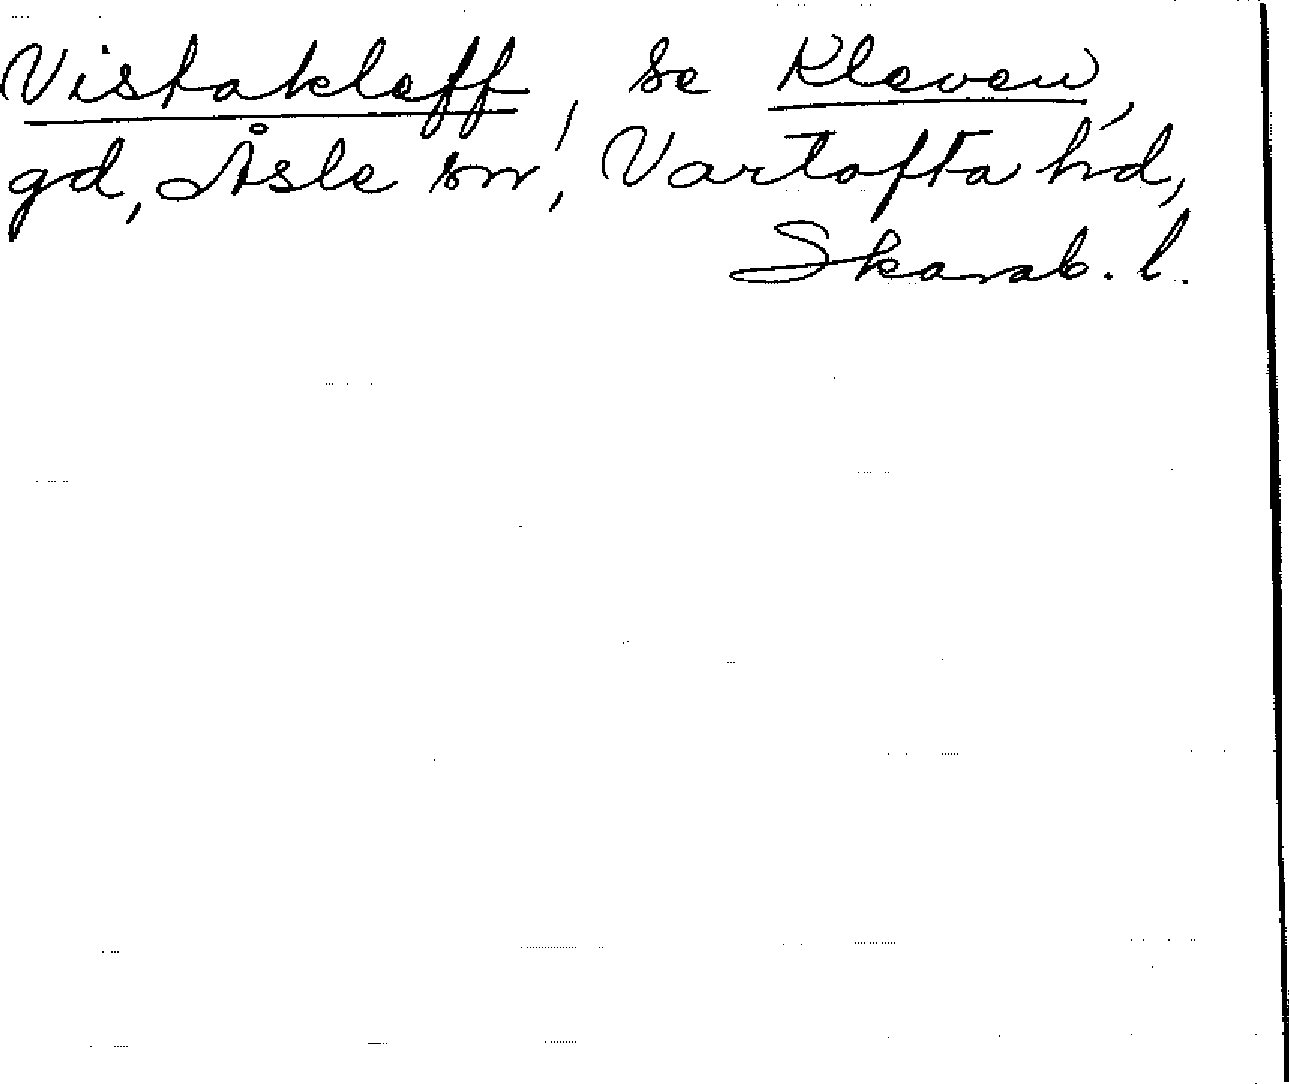 Vistakleff, se Kleven,
gd, Åsle sn, Vartofta hd,
Skarab. l.